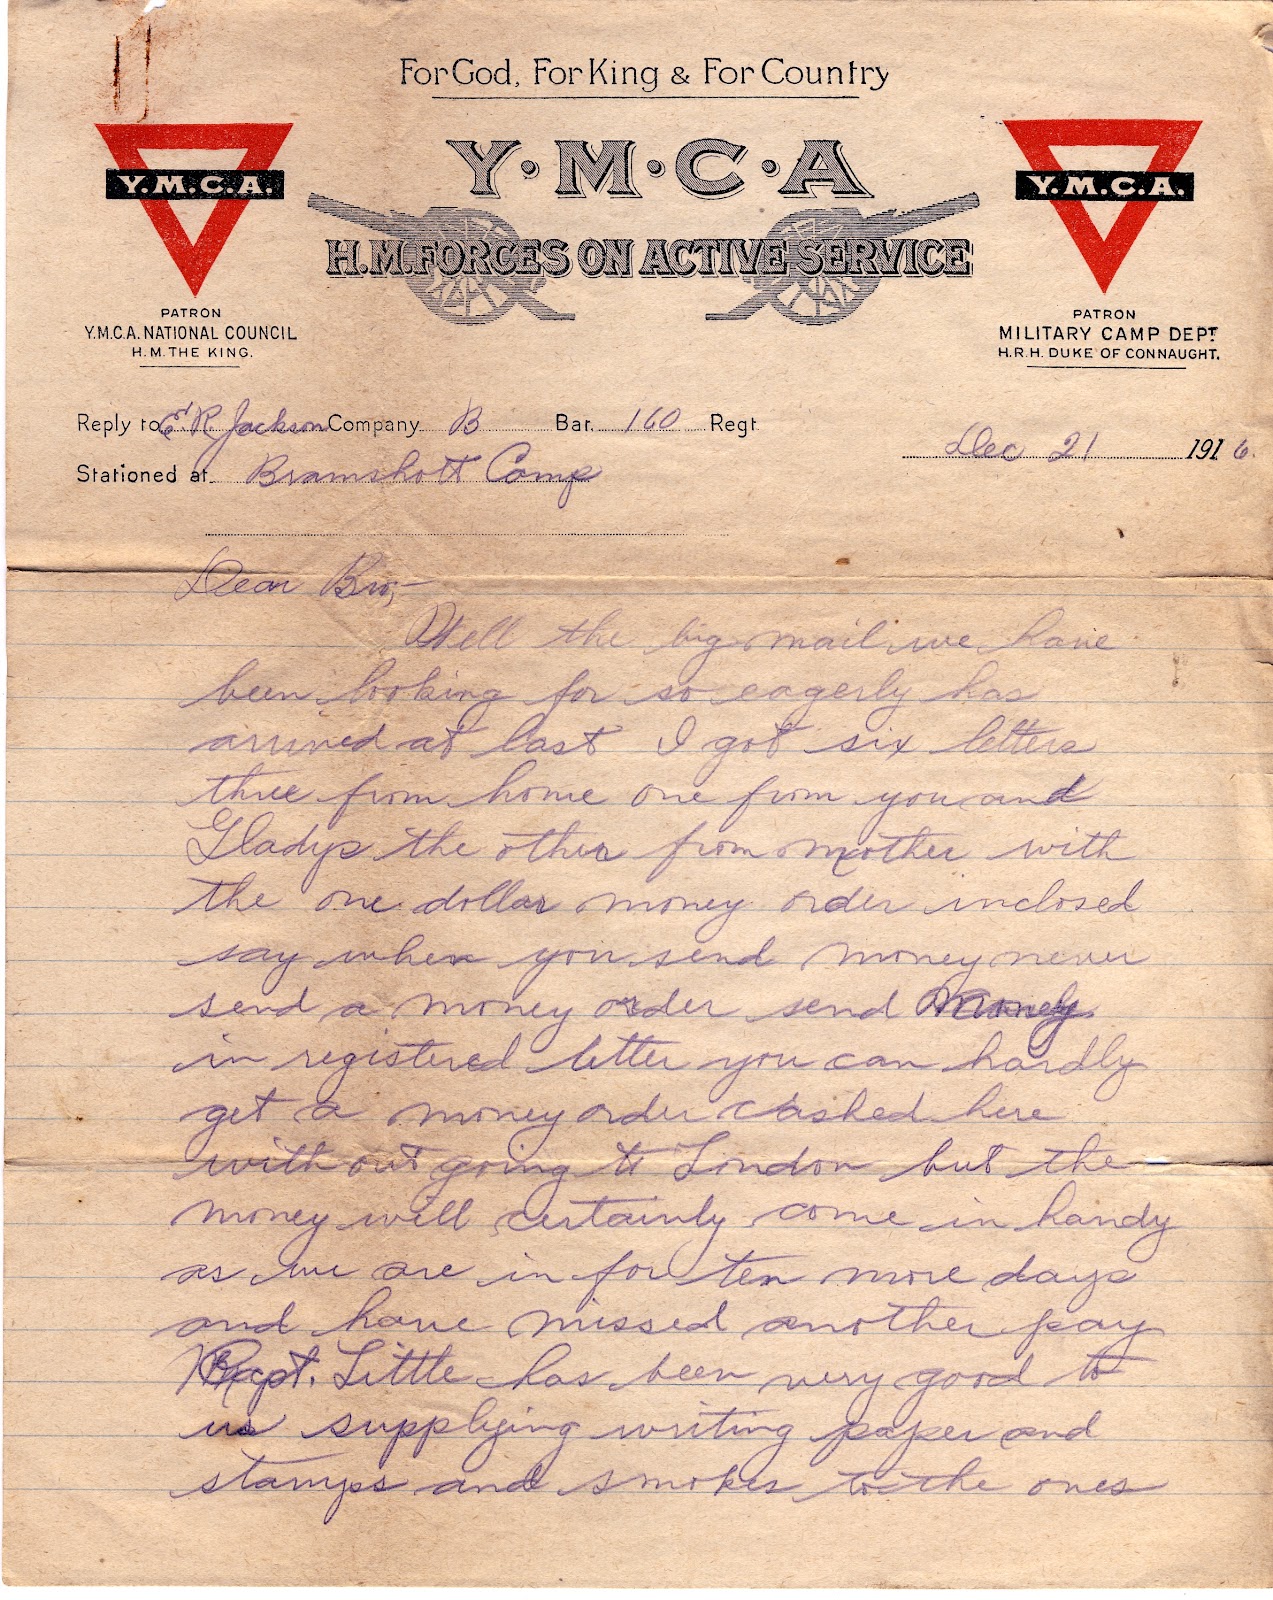 For God, For King & For Country
Y·M·C·A
Y.M.C.A.
Y.M.C.A.
H.M. FORCES ON ACTIVE SERVICE
PATRON
Y.M.C.A. NATIONAL COUNCIL
H.M. THE KING.
PATRON
MILITARY CAMP DEPT.
H.R.H. DUKE OF CONNAUGHT.
Reply to E R. Jackson Company B Bat. 160 Regt
Dec 21 1916.
Stationed at Bramshott Camp
Dear Bro,—
Well the big mail we have
been looking for so eagerly has
arrived at last I got six letters
three from home one from you and
Gladys the other from mother with
the one dollar money order inclosed
say when you send money never
send a money order send money
in registered letter you can hardly
get a money order cashed here
with out going to London but the
money will certainly come in handy
as we are in for ten more days
and have missed another pay
Capt. Little has been very good to
us supplying writing paper and
stamps and smokes to the ones